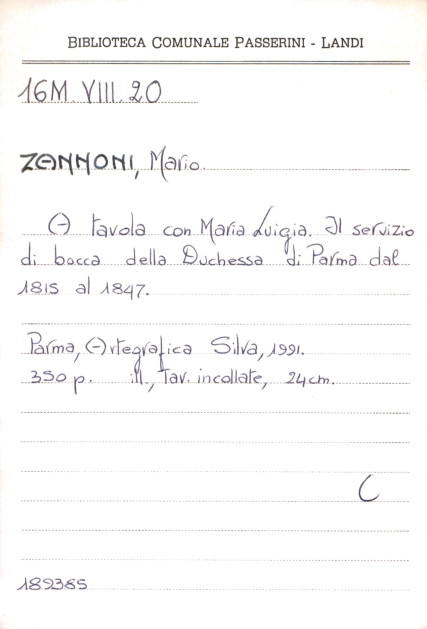 BIBLIOTECA COMUNALE PASSERINI - LANDI
16M. VIII. 20
ZANNONI, Mario
A tavola con Maria Luigia. Il servizio
di bocca della Duchessa di Parma dal
1815 al 1847.
Parma, Artegrafica Silva, 1991.
350 p. ill., Tav. incollate, 24cm.
C
189385